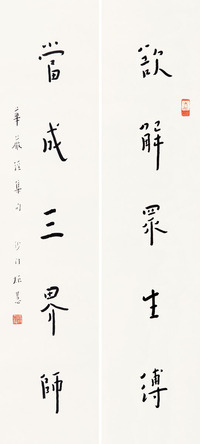 欲解眾生縛
當成三界師
華嚴經集句
沙門